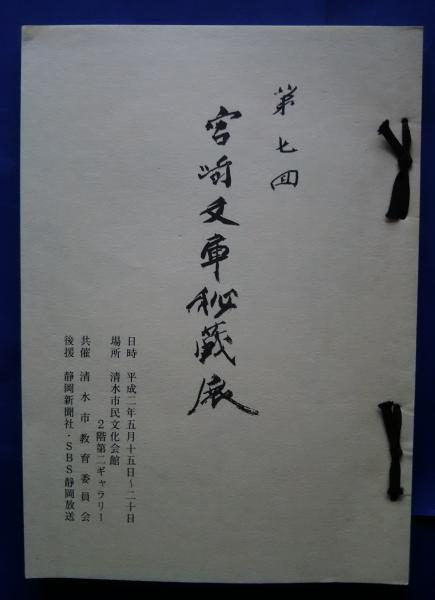 第七回
宮崎文庫秘蔵展
日時　平成二年五月十五日～二十日
場所　清水市民文化会館
２階第二ギャラリー
共催　清水市教育委員会
後援　静岡新聞社・ＳＢＳ静岡放送